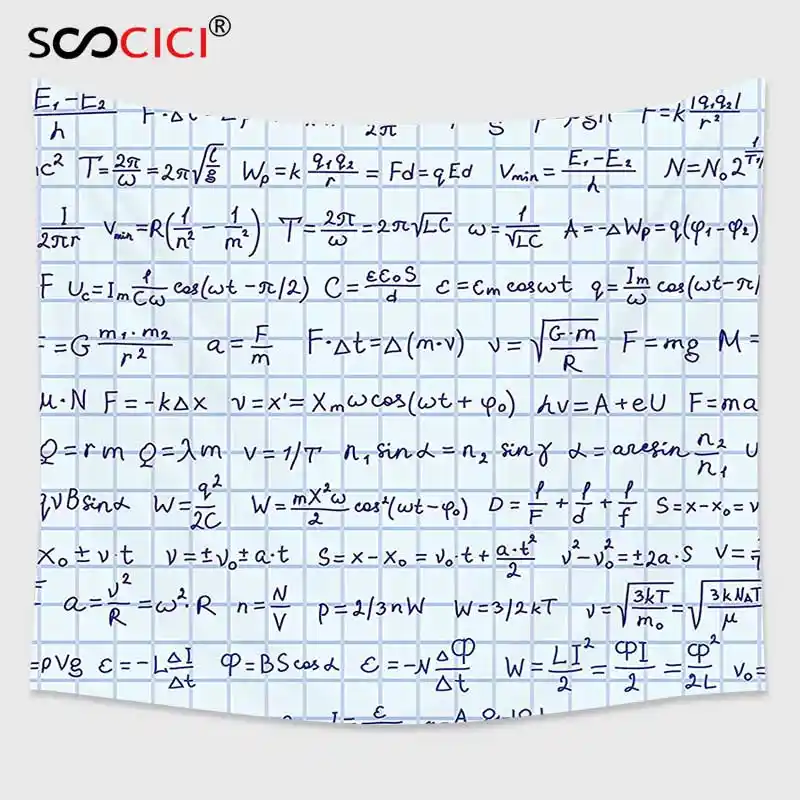 SOOCICI®
E₁-E₂/h 2π r=k|q₁q₂|/r²
c² T=2π/ω=2π√(ℓ/g) Wₚ=k q₁q₂/r = Fd=qEd Vmin=(E₁-E₂)/h N=N₀2
I/2πr Vmin=R(1/n² - 1/m²) T=2π/ω=2π√LC ω=1/√LC A=-ΔWₚ=q(φ₁-φ₂)
F Uc=Im 1/Cω cos(ωt-π/2) C=εε₀S/d ε=εm cosωt q=Im/ω cos(ωt-π/
=G m₁·m₂/r² a=F/m F·Δt=Δ(m·v) v=√(G·m/R) F=mg M=
μ·N F=-kΔx v=x'=Xmωcos(ωt+φ₀) hv=A+eU F=ma
Q=rm Q=λm V=1/T n₁ sinα=n₂ sinγ α=arcsin n₂/n₁ U
qvBsinα W=q²/2C W=mX²ω/2 cos²(ωt-φ₀) D=1/F+1/d+1/f S=x-x₀=v
X₀±v·t v=±v₀±a·t S=x-X₀=v₀·t+a·t²/2 v²-v₀²=±2a·S V=
a=v²/R=ω²·R n=N/V p=2/3nW W=3/2kT v=√(3kT/m₀)=√(3kNAT/μ)
=ρVg ε=-LΔI/Δt Φ=BScosα ε=-NΔΦ/Δt W=LI²/2=ΦI/2=Φ²/2L v₀=
I=ε